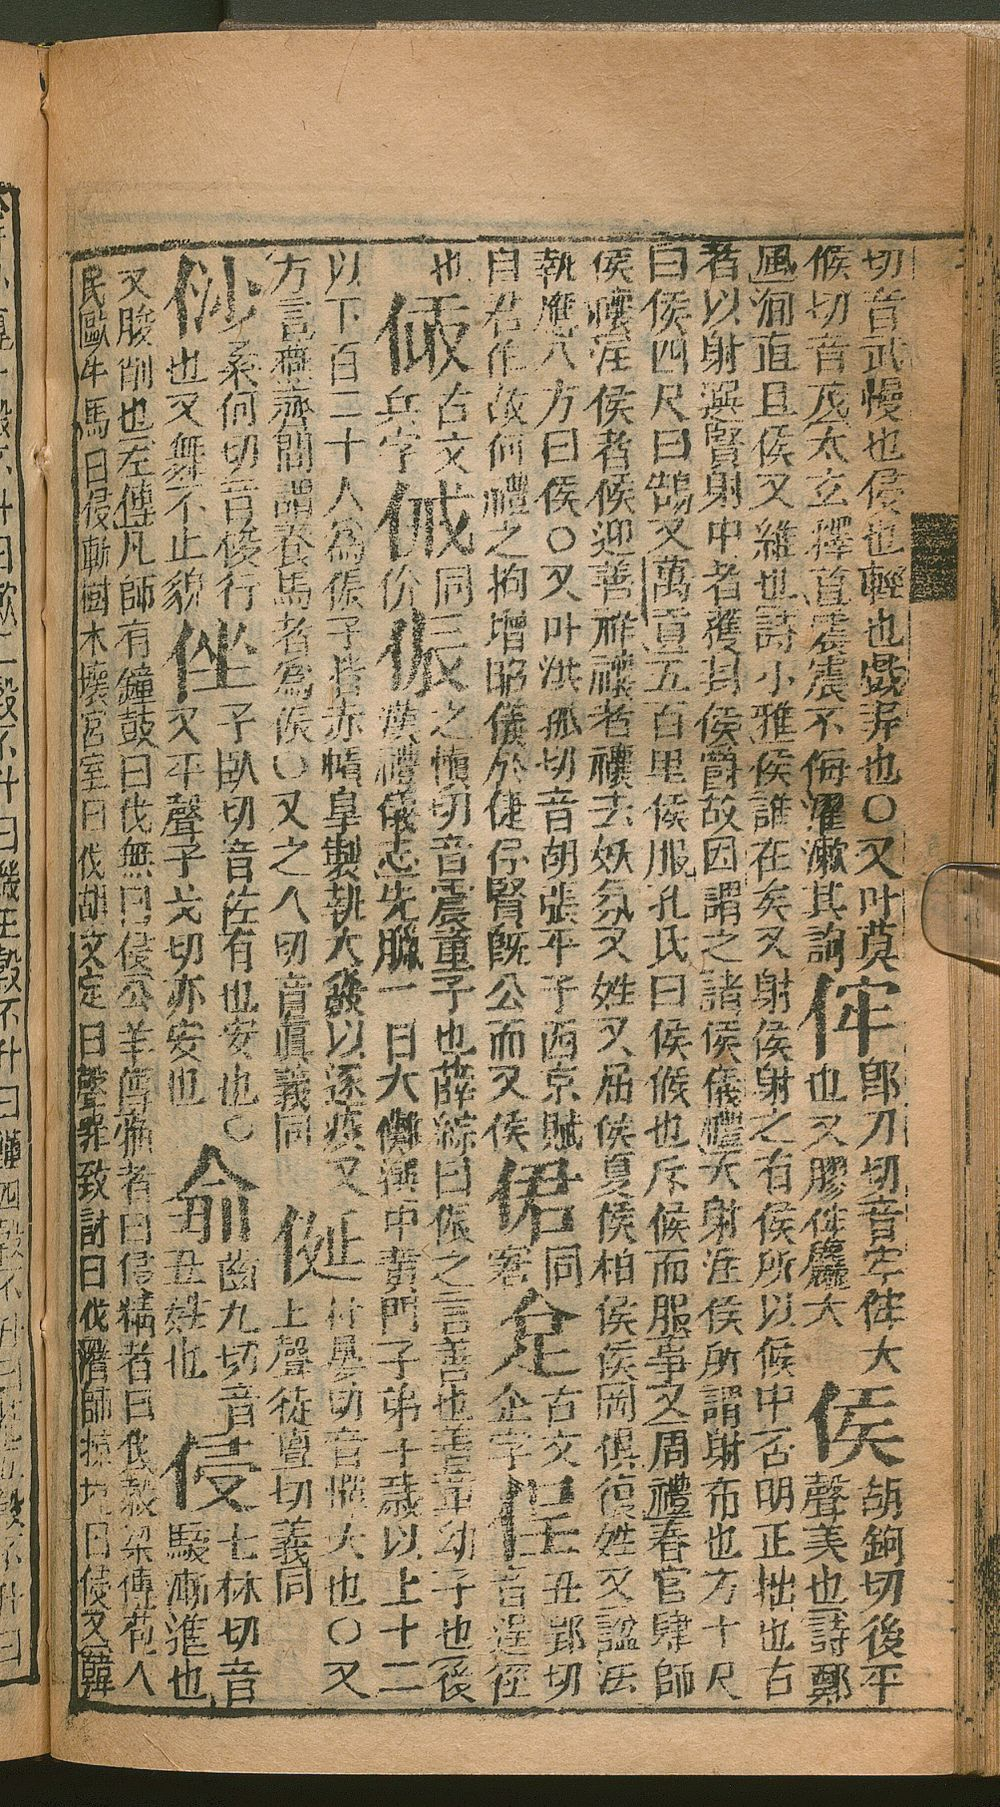 切音武慢也侵也輕也戲弄也○又叶莫
候切音茂太玄擇首震震不侮濯漱其詢
郎刀切音牢 大
也又膠 麤大
侯
胡鉤切後平
聲美也詩鄭
風洵直且侯又維也詩小雅侯誰在矣又射侯射之有侯所以候中否明正拙也古
者以射選賢射中者獲封侯爵故因謂之諸侯儀禮大射注侯所謂射布也方十尺
曰侯四尺曰鵠又萬貢五百里侯服孔氏曰侯候也斥候而服事又周禮春官肄師
侯禳注侯者候迎善祥禳者禳去妖氛又姓又屈侯夏侯柏侯侯岡俱復姓又諡法
執應八方曰侯○又叶洪孤切音胡張平子西京賦
自君作故何禮之拘增昭儀於倢伃賢既公而又侯
侰
同
窘
古文
企字
侱
丑郢切
音逞徑
也
古文
兵字
同
价
侲
之慎切音震童子也薛綜曰侲之言善也善童幼子也後
漢禮儀志先臘一日大儺選中黃門子弟十歲以上十二
以下百二十人為侲子皆赤幘皁製執大鼗以逐疫又
方言燕齊間謂養馬者為侲○又之人切音真義同
大也○又
上聲徒亶切義同
桑何切音娑行
也又舞不止貌
侳
子臥切音佐有也安也○
又平聲子戈切亦安也
侴
齒九切音
丑姓也
侵
七林切音
駸漸進也
又朘削也左傳凡師有鐘鼓曰伐無曰侵公羊傳觕者曰侵精者曰伐穀梁傳苞人
民毆牛馬曰侵斬樹木壞宮室曰伐胡文定曰聲罪致討曰伐潛師掠境曰侵又韓